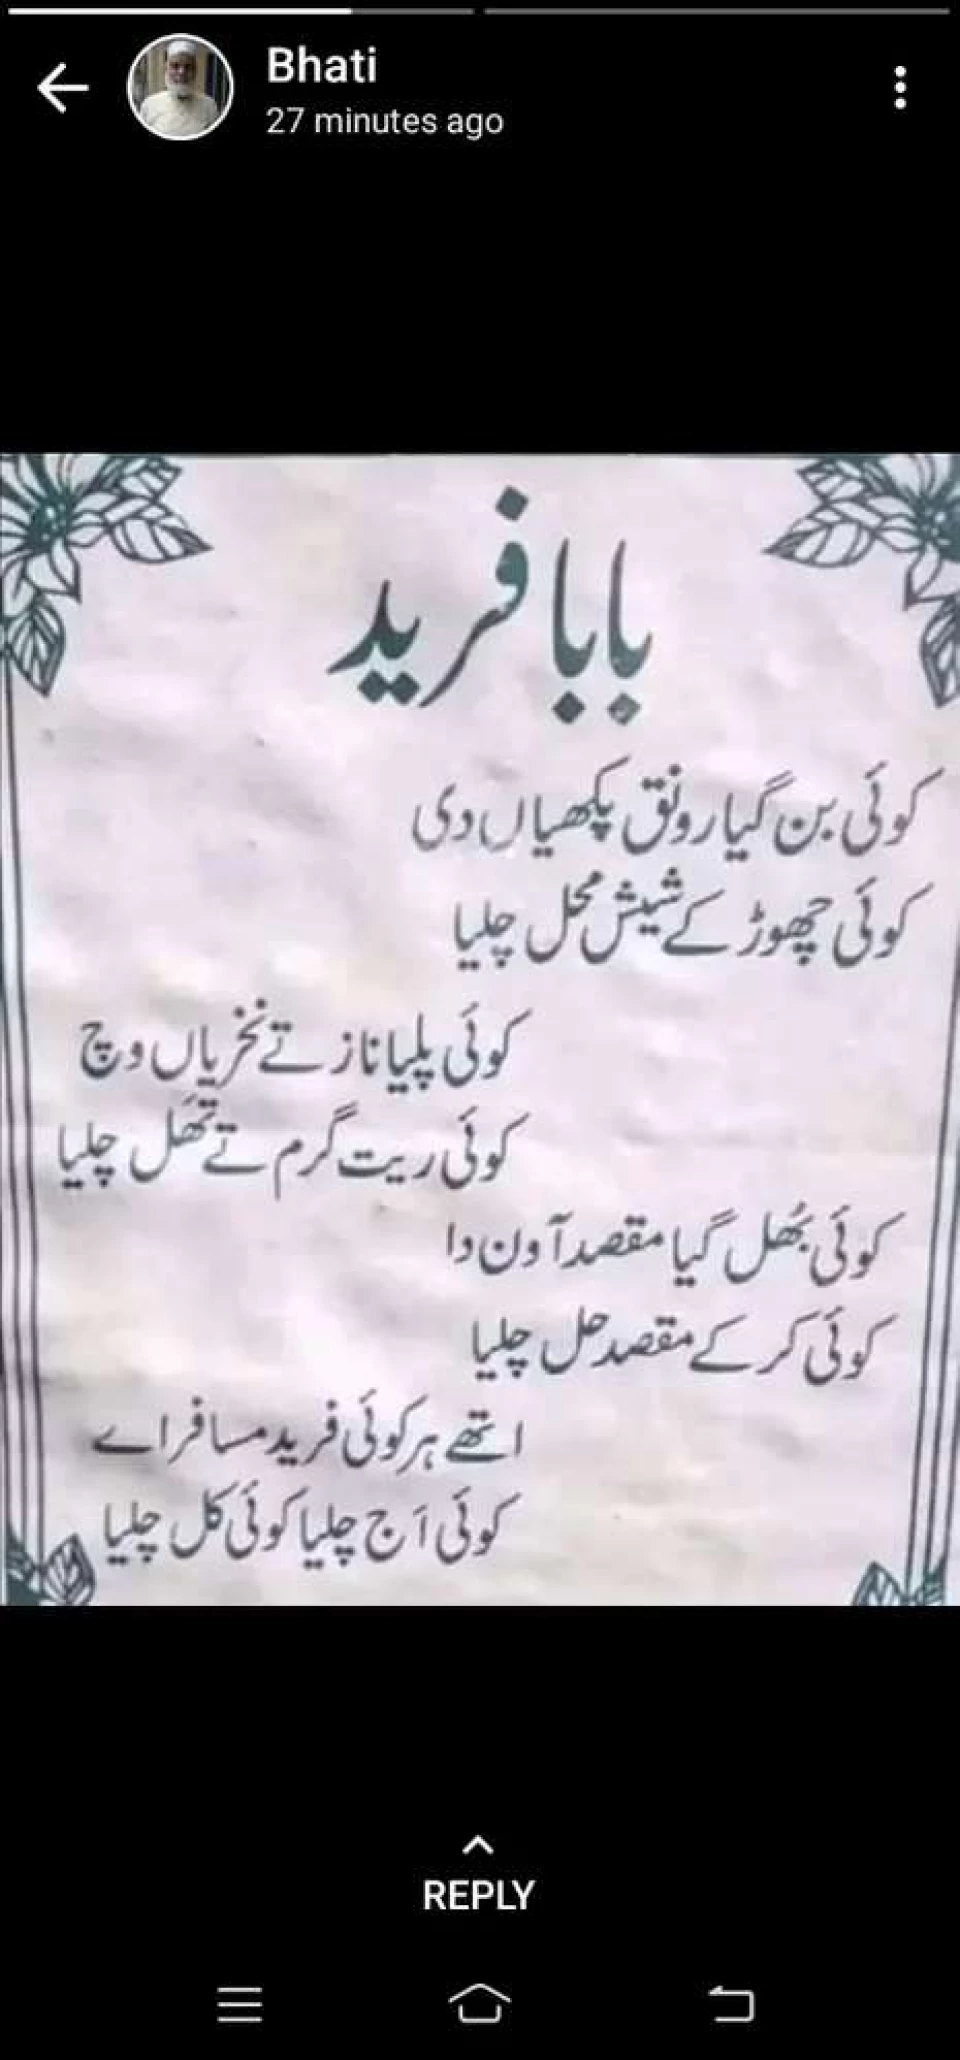 Bhati
27 minutes ago
بابا فرید
کوئی بن گیا رونق پکھیاں دی
کوئی چھوڑ کے شیش محل چلیا
کوئی پلیا ناز تے نخریاں وچ
کوئی ریت گرم تے تھَل چلیا
کوئی بھُل گیا مقصد آون دا
کوئی کر کے مقصد حل چلیا
اتھے ہر کوئی فرید مسافر اے
کوئی اَج چلیا کوئی کل چلیا
REPLY